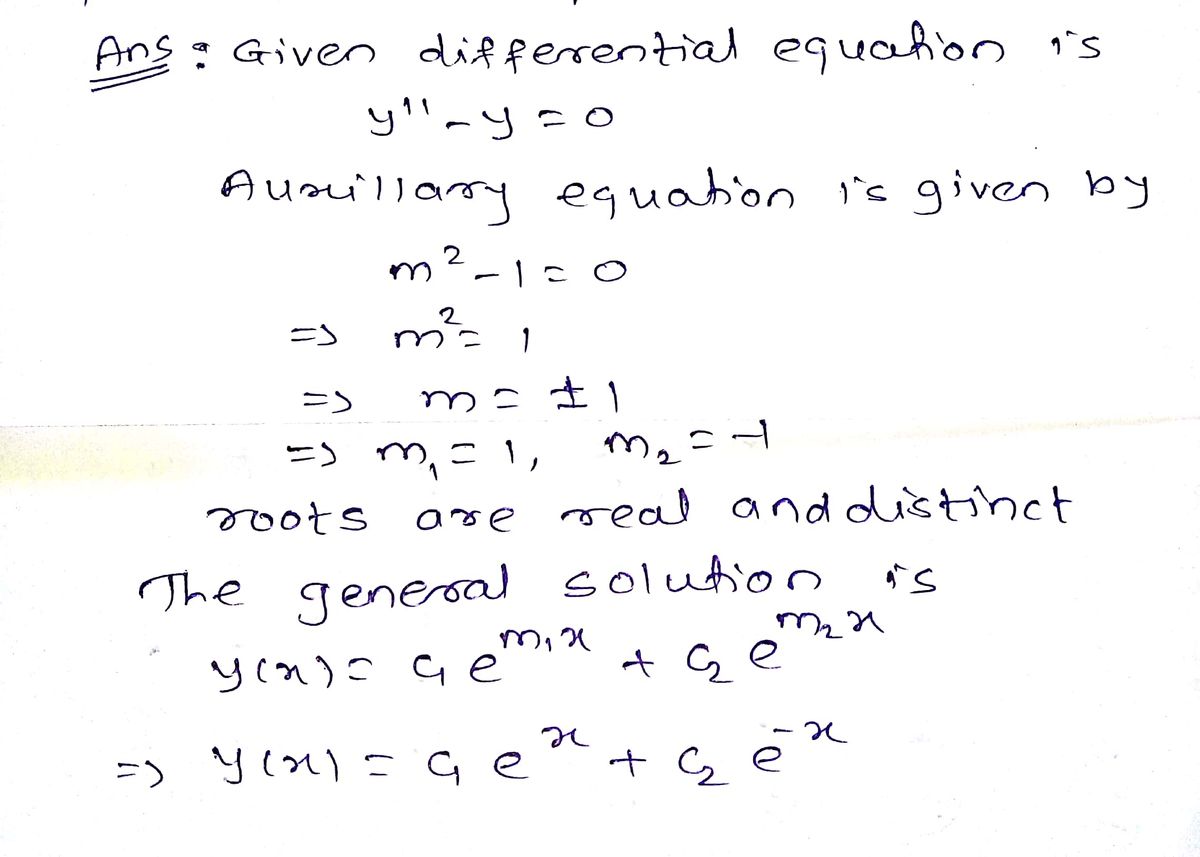 Ans : Given differential equation is
y'' - y = 0
Auxillary equation is given by
m² - 1 = 0
=> m² = 1
=> m = ± 1
=> m₁ = 1, m₂ = -1
roots are real and distinct
The general solution is
y(x) = C₁ e^{m₁x} + C₂ e^{m₂x}
=> y(x) = C₁ e^{x} + C₂ e^{-x}